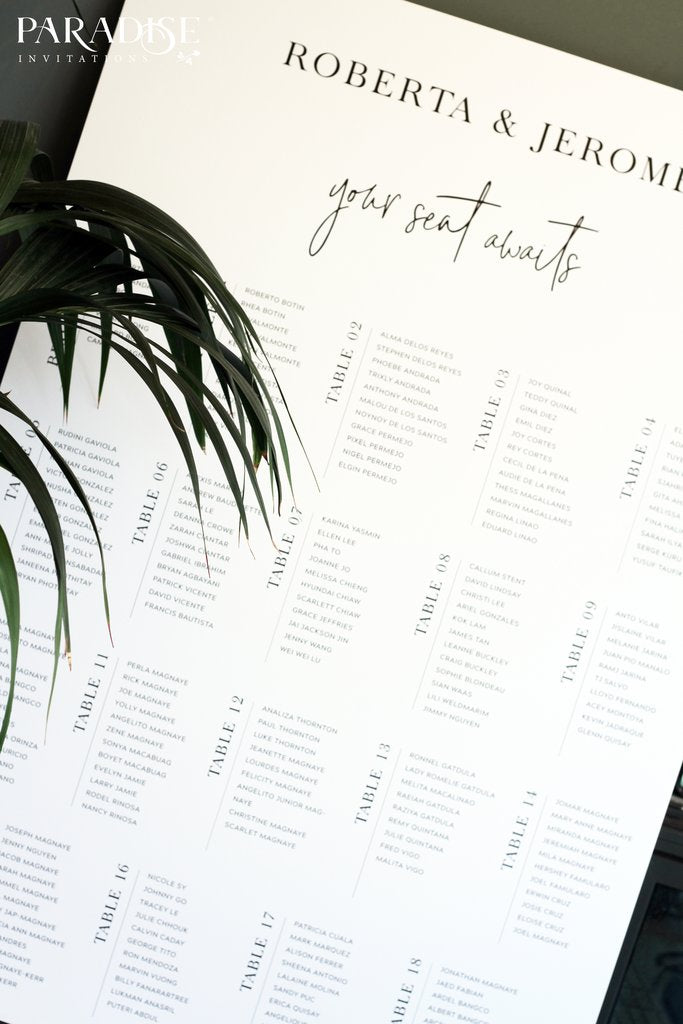 PARADISE
INVITATIONS
ROBERTA & JEROME
your seat awaits
ROBERTO BOTIN
RHEA BOTIN
TABLE 02
ALMA DELOS REYES
STEPHEN DELOS REYES
PHOEBE ANDRADA
TRIKLY ANDRADA
ANTHONY ANDRADA
MALOU DE LOS SANTOS
NOYNOY DE LOS SANTOS
GRACE PERMEJO
PIXEL PERMEJO
NIGEL PERMEJO
ELGIN PERMEJO
TABLE 03
JOY QUINAL
TEDDY QUINAL
GINA DIEZ
EMIL DIEZ
JOY CORTES
REY CORTES
CECIL DE LA PENA
AUDIE DE LA PENA
THESS MAGALLANES
MARVIN MAGALLANES
REGINA LINAO
EDUARD LINAO
TABLE 04
RUDINI GAVIOLA
PATRICIA GAVIOLA
GAVIOLA
GONZALEZ
GONZALEZ
GONZALEZ
GONZALEZ
GONZALEZ
JOLLY
JANEENA
TABLE 06
ANDREW
SARAH LE
DEANNE CROWE
ZARAH CIANTAR
JOSHWA CIANTAR
GABRIEL IBRAHIM
BRYAN AGBAYANI
PATRICK VICENTE
DAVID VICENTE
FRANCIS BAUTISTA
TABLE 07
KARINA YASMIN
ELLEN LEE
PHA TO
JOANNE JO
MELISSA CHIENG
HYUNDAI CHIAW
SCARLETT CHIAW
GRACE JEFFRIES
JAI JACKSON JIN
JENNY WANG
WEI WEI LU
TABLE 08
CALLUM STENT
DAVID LINDSAY
CHRISTI LEE
ARIEL GONZALES
KOK LAM
JAMES TAN
LEANNE BUCKLEY
CRAIG BUCKLEY
SOPHIE BLONDEAU
SIAN WAAS
LILI WELDMARIM
JIMMY NGUYEN
TABLE 09
ANTO VILAR
JISLAINE VILAR
MELANIE JARINA
JUAN PIO MANALO
RAMJ JARINA
TJ SALVO
LLOYD FERNANDO
ACEY MONTOYA
KEVIN JADRAQUE
GLENN QUISAY
TABLE 11
PERLA MAGNAYE
RICK MAGNAYE
JOE MAGNAYE
YOLLY MAGNAYE
ANGELITO MAGNAYE
ZENE MAGNAYE
SONYA MACABUAG
BOYET MACABUAG
EVELYN JAMIE
LARRY JAMIE
RODEL RINOSA
NANCY RINOSA
TABLE 12
ANALIZA THORNTON
PAUL THORNTON
LUKE THORNTON
JEANETTE MAGNAYE
LOURDES MAGNAYE
FELICITY MAGNAYE
ANGELITO JUNIOR MAG-
NAYE
CHRISTINE MAGNAYE
SCARLET MAGNAYE
TABLE 13
RONNEL GATDULA
LADY ROMELIE GATDULA
MELITA MACALINAO
RAEIAH GATDULA
RAZIYA GATDULA
REMY QUINTANA
JULIE QUINTANA
FRED VIGO
MALITA VIGO
TABLE 14
JOMAR MAGNAYE
MARY ANNE MAGNAYE
MIRANDA MAGNAYE
JEREMIAH MAGNAYE
MILA MAGNAYE
HERSHEY FAMULARO
JOEL FAMULARO
ERWIN CRUZ
JOSIE CRUZ
ELOISE CRUZ
JOEL MAGNAYE
JOSEPH MAGNAYE
JENNY NGUYEN
JACOB MAGNAYE
SARAH MAGNAYE
MAGNAYE
MAGNAYE
JAP-MAGNAYE
ANN MAGNAYE
TABLE 16
NICOLE SY
JOHNNY GO
TRACEY LE
JULIE CHHOUK
CALVIN CADAY
GEORGE TITO
RON MENDOZA
MARVIN VUONG
BILLY FANARARTREE
LUKMAN ANASRIL
PUTERI ABDUL
TABLE 17
PATRICIA CUALA
MARK MARQUEZ
ALISON FERRER
SHEENA ANTONIO
LALAINE MOLINA
SANDY PUC
ERICA QUISAY
TABLE 18
JONATHAN MAGNAYE
JAED FABIAN
ARDEL BANGCO
ALBERT BANGCO